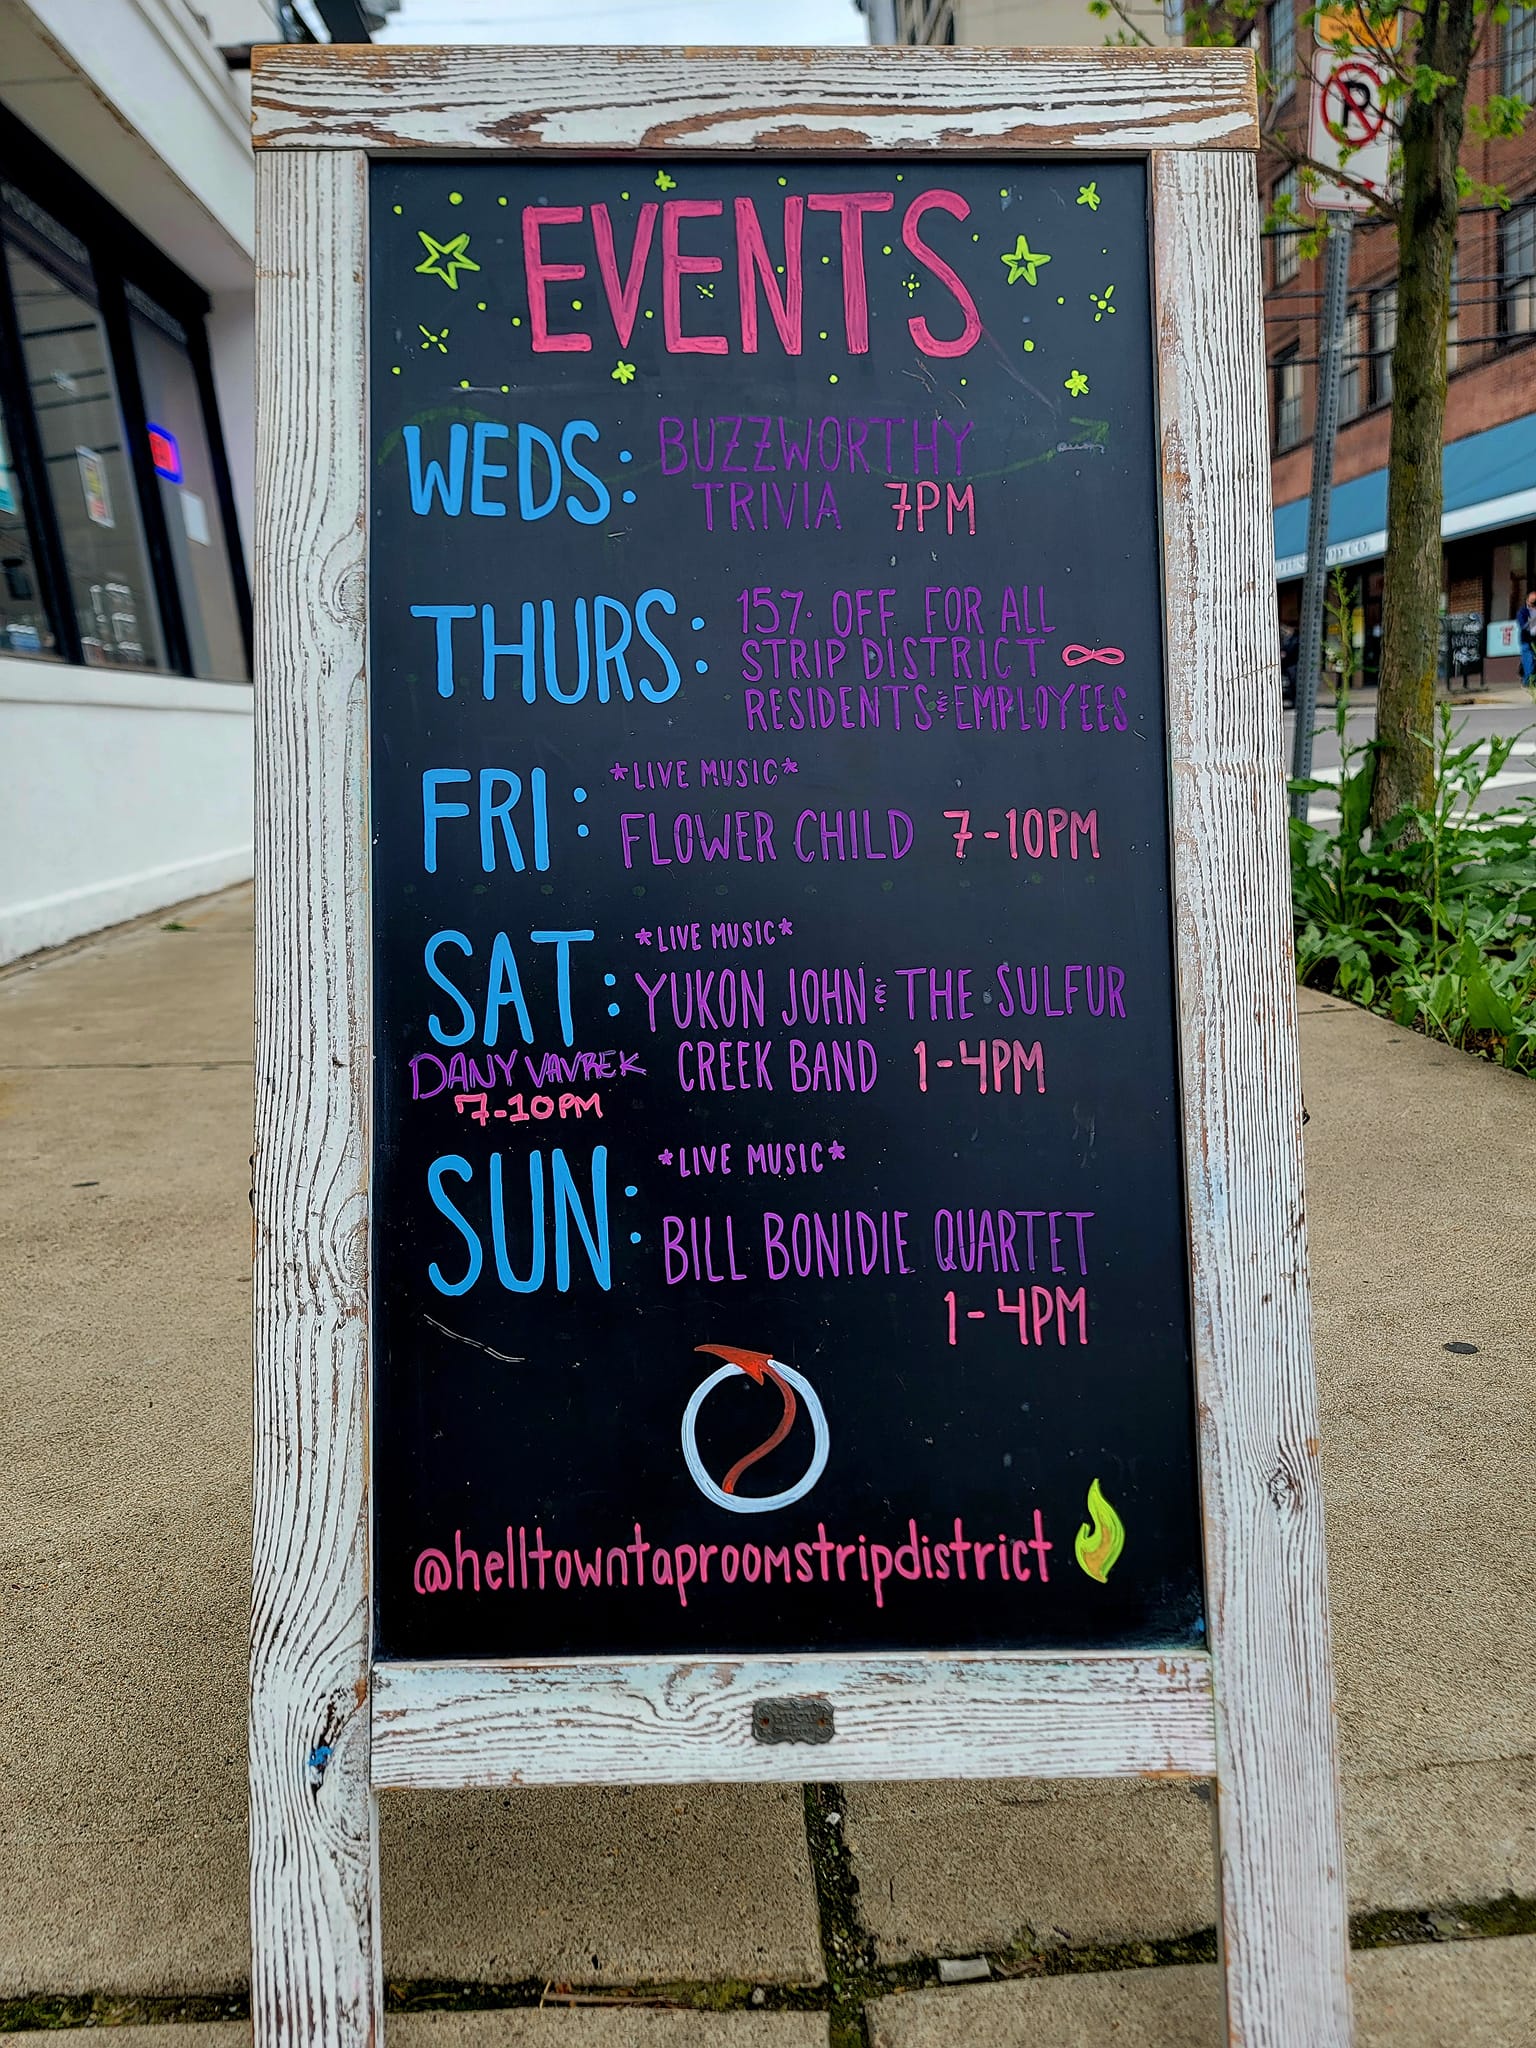 EVENTS
WEDS: BUZZWORTHY
TRIVIA 7PM
THURS: 15% OFF FOR ALL
STRIP DISTRICT ∞
RESIDENTS & EMPLOYEES
FRI: *LIVE MUSIC*
FLOWER CHILD 7-10PM
SAT: *LIVE MUSIC*
YUKON JOHN & THE SULFUR
CREEK BAND 1-4PM
DANY VAVREK
7-10PM
SUN: *LIVE MUSIC*
BILL BONIDIE QUARTET
1-4PM
@helltowntaproomstripdistrict